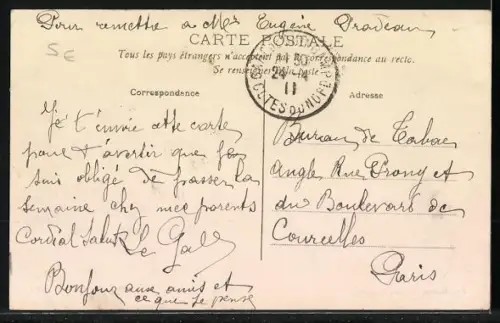 Pour remettre à Mr Eugène Pradeau
5E
CARTE POSTALE
Tous les pays étrangers n'acceptent pas la correspondance au recto.
Se renseigner à la poste
30
24 -4
11
COTES DU NORD
Correspondance
Je t'envie cette carte
pour t'avertir que je
suis obligé de passer la
semaine chez mes parents
Cordial Salut Le Gall
Bonjour aux amis et
ce que je pense
Adresse
Bureau de Tabac
Angle Rue Prony et
du Boulevard de
Courcelles
Paris